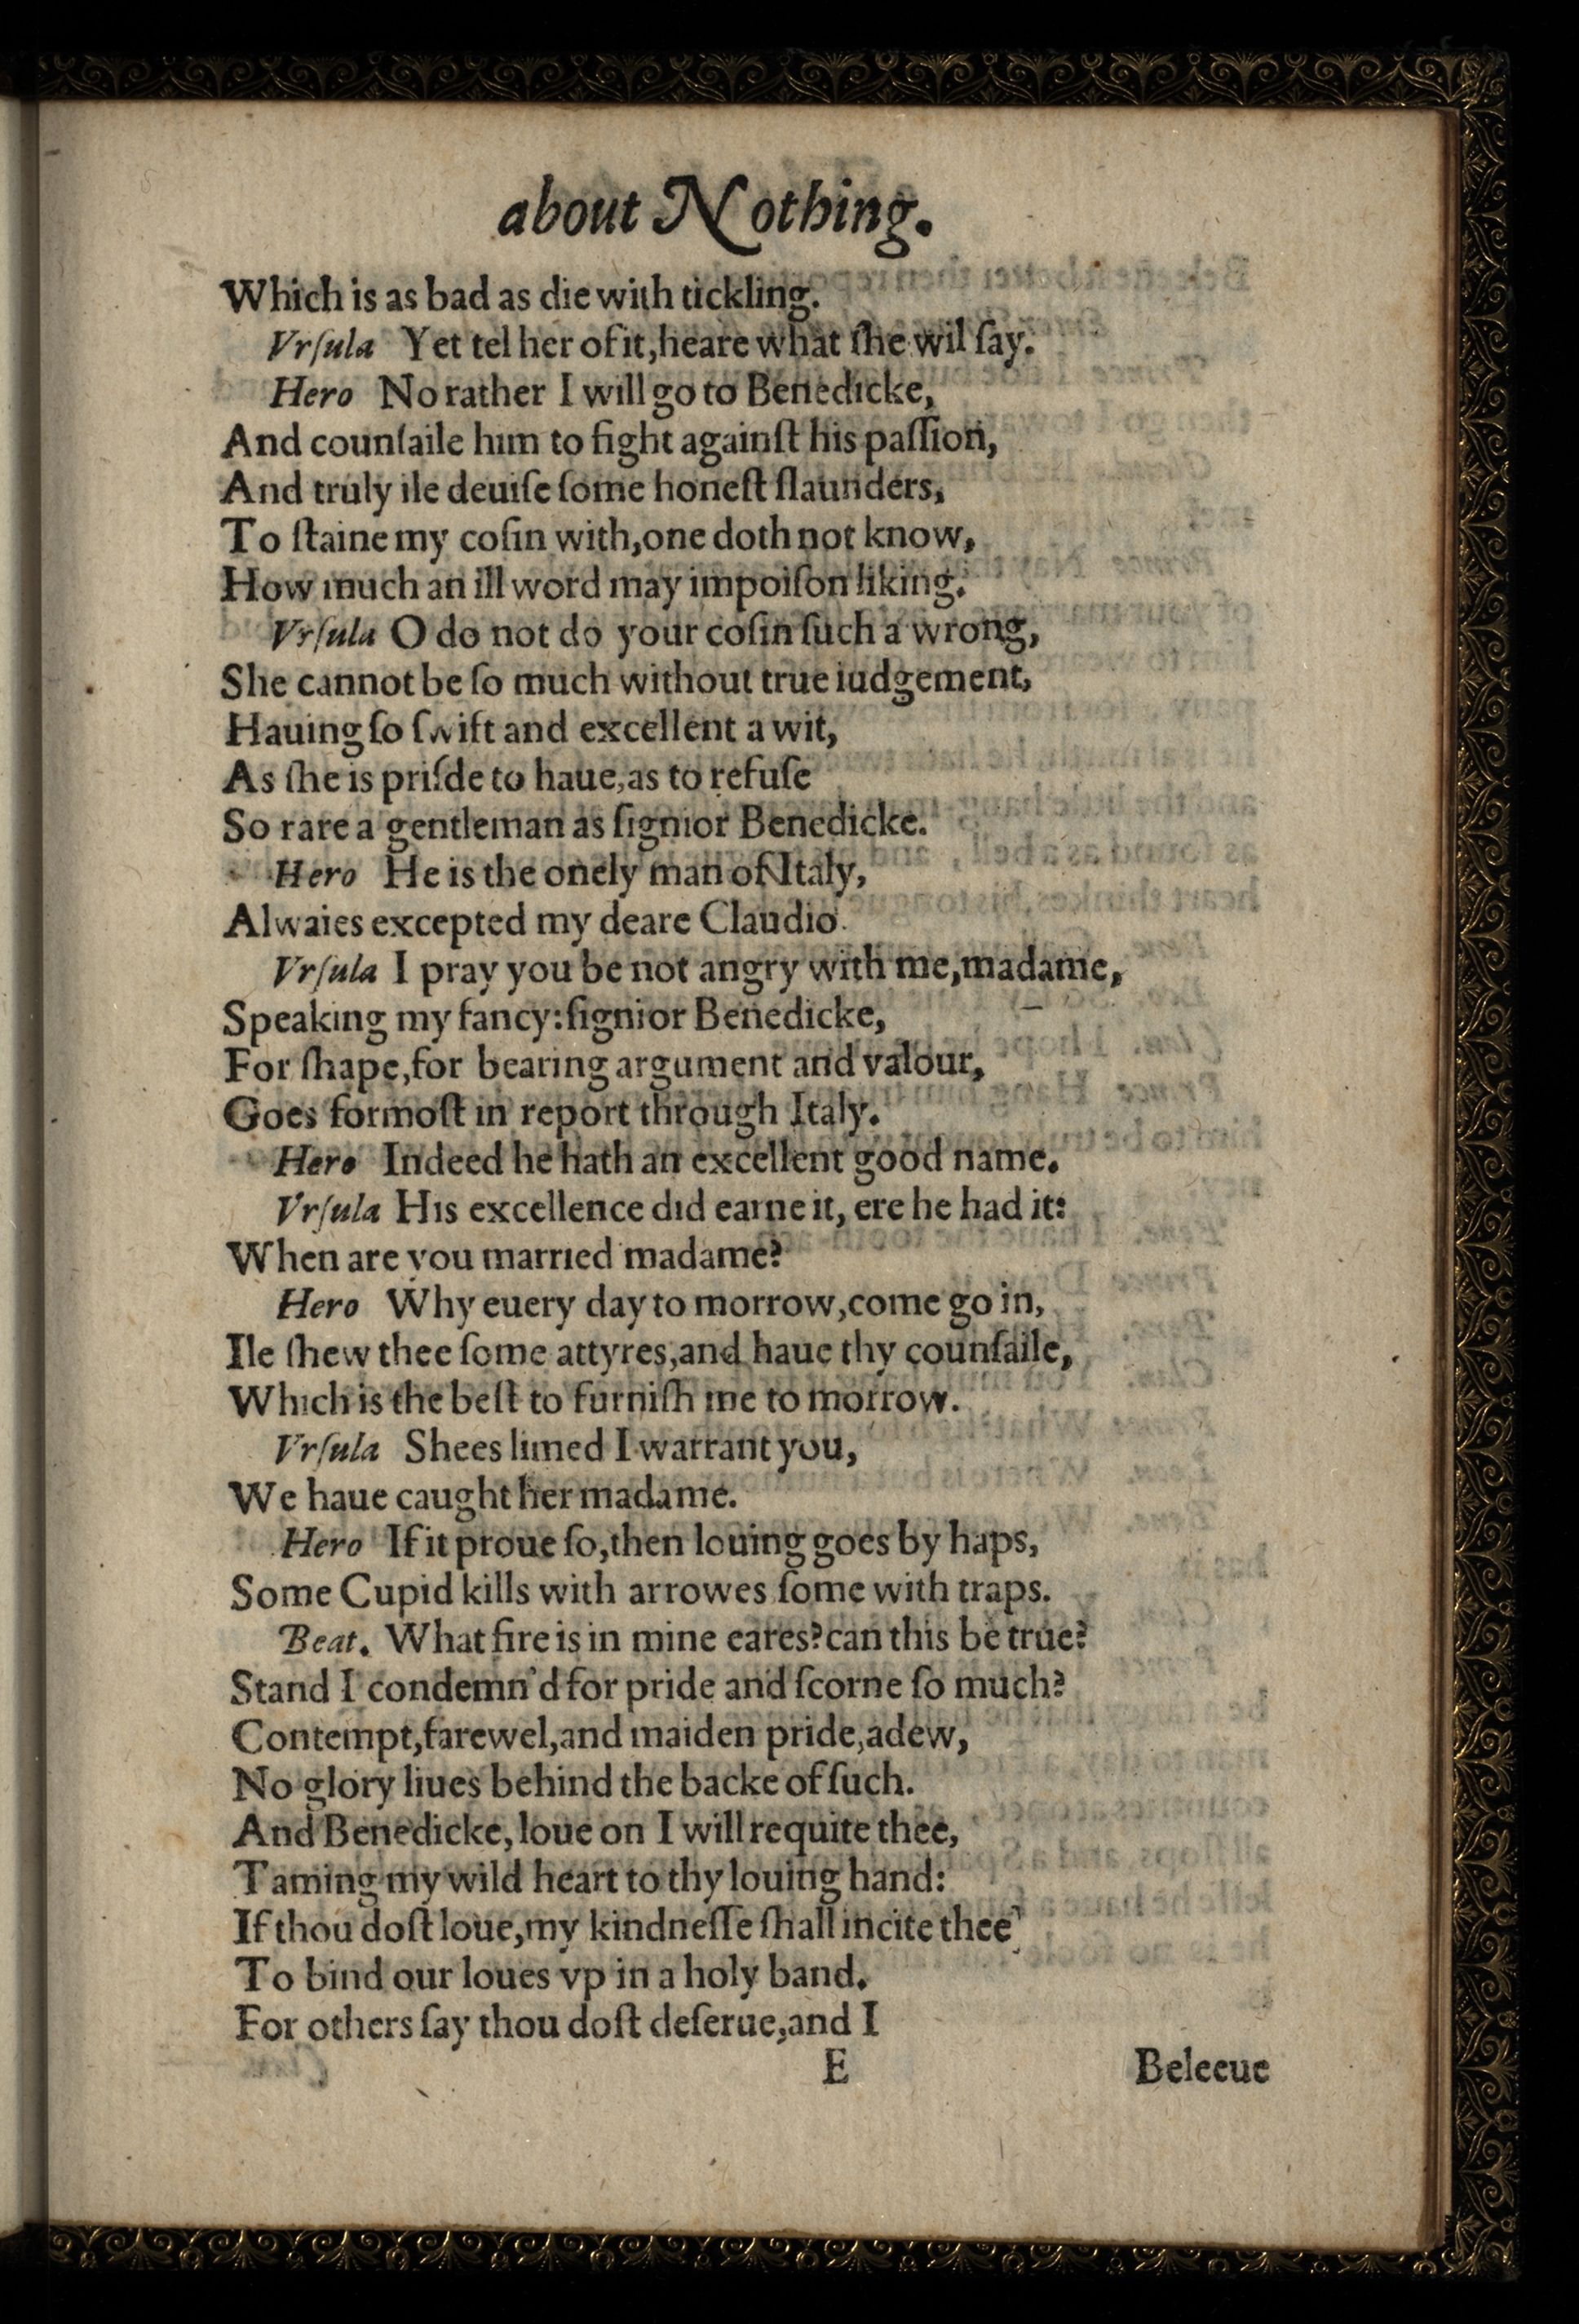 about Nothing.
Which is as bad as die with tickling.
Vrſula Yet tel her of it,heare what ſhe wil ſay.
Hero No rather I will go to Benedicke,
And counſaile him to fight againſt his paſſion,
And truly ile deuiſe ſome honeſt ſlaunders,
To ſtaine my coſin with,one doth not know,
How much an ill word may impoiſon liking.
Vrſula O do not do your coſin ſuch a wrong,
She cannot be ſo much without true iudgement,
Hauing ſo ſwift and excellent a wit,
As ſhe is priſde to haue,as to refuſe
So rare a gentleman as ſignior Benedicke.
Hero He is the onely man of Italy,
Alwaies excepted my deare Claudio.
Vrſula I pray you be not angry with me,madame,
Speaking my fancy:ſignior Benedicke,
For ſhape,for bearing argument and valour,
Goes formoſt in report through Italy.
Hero Indeed he hath an excellent good name.
Vrſula His excellence did earne it, ere he had it:
When are you married madame?
Hero Why euery day to morrow,come go in,
Ile ſhew thee ſome attyres,and haue thy counſaile,
Which is the beſt to furniſh me to morrow.
Vrſula Shees limed I warrant you,
We haue caught her madame.
Hero If it proue ſo,then louing goes by haps,
Some Cupid kills with arrowes ſome with traps.
Beat. What fire is in mine eares?can this be true?
Stand I condemn'd for pride and ſcorne ſo much?
Contempt,farewel,and maiden pride,adew,
No glory liues behind the backe of ſuch.
And Benedicke,loue on I will requite thee,
Taming my wild heart to thy louing hand:
If thou doſt loue,my kindneſſe ſhall incite thee
To bind our loues vp in a holy band.
For others ſay thou doſt deſerue,and I
E Beleeue